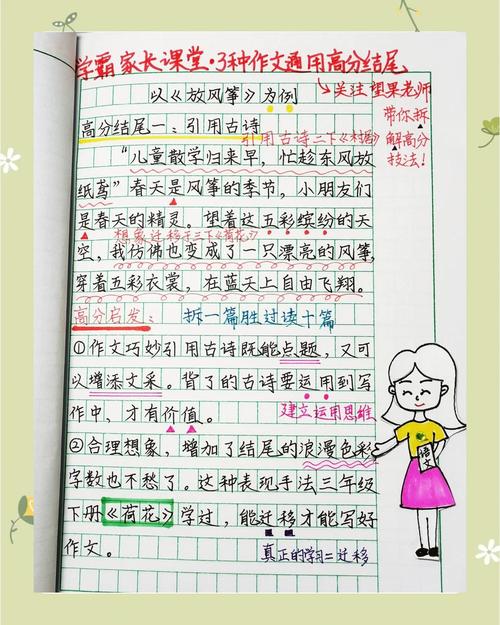 学霸家长课堂·3种作文通用高分结尾
关注望果老师
以《放风筝》为例
带你拆
解高分
技法!
高分结尾一:引用古诗
引用古诗二下《村居》
“儿童散学归来早,忙趁东风放
纸鸢”春天是风筝的季节,小朋友们
是春天的精灵。望着这五彩缤纷的天
想象迁移于三下《荷花》
空,我仿佛也变成了一只漂亮的风筝,
穿着五彩衣裳,在蓝天上自由飞翔。
高分启发:
拆一篇胜过读十篇
①作文巧妙引用古诗既能点题,又可
以增添文采。背了的古诗要运用到写
作中,才有价值。
建立运用思维
②合理想象,增加了结尾的浪漫色彩
字数也不愁了。这种表现手法三年级
下册《荷花》学过,能迁移才能写好
作文。
真正的学习=迁移
语文